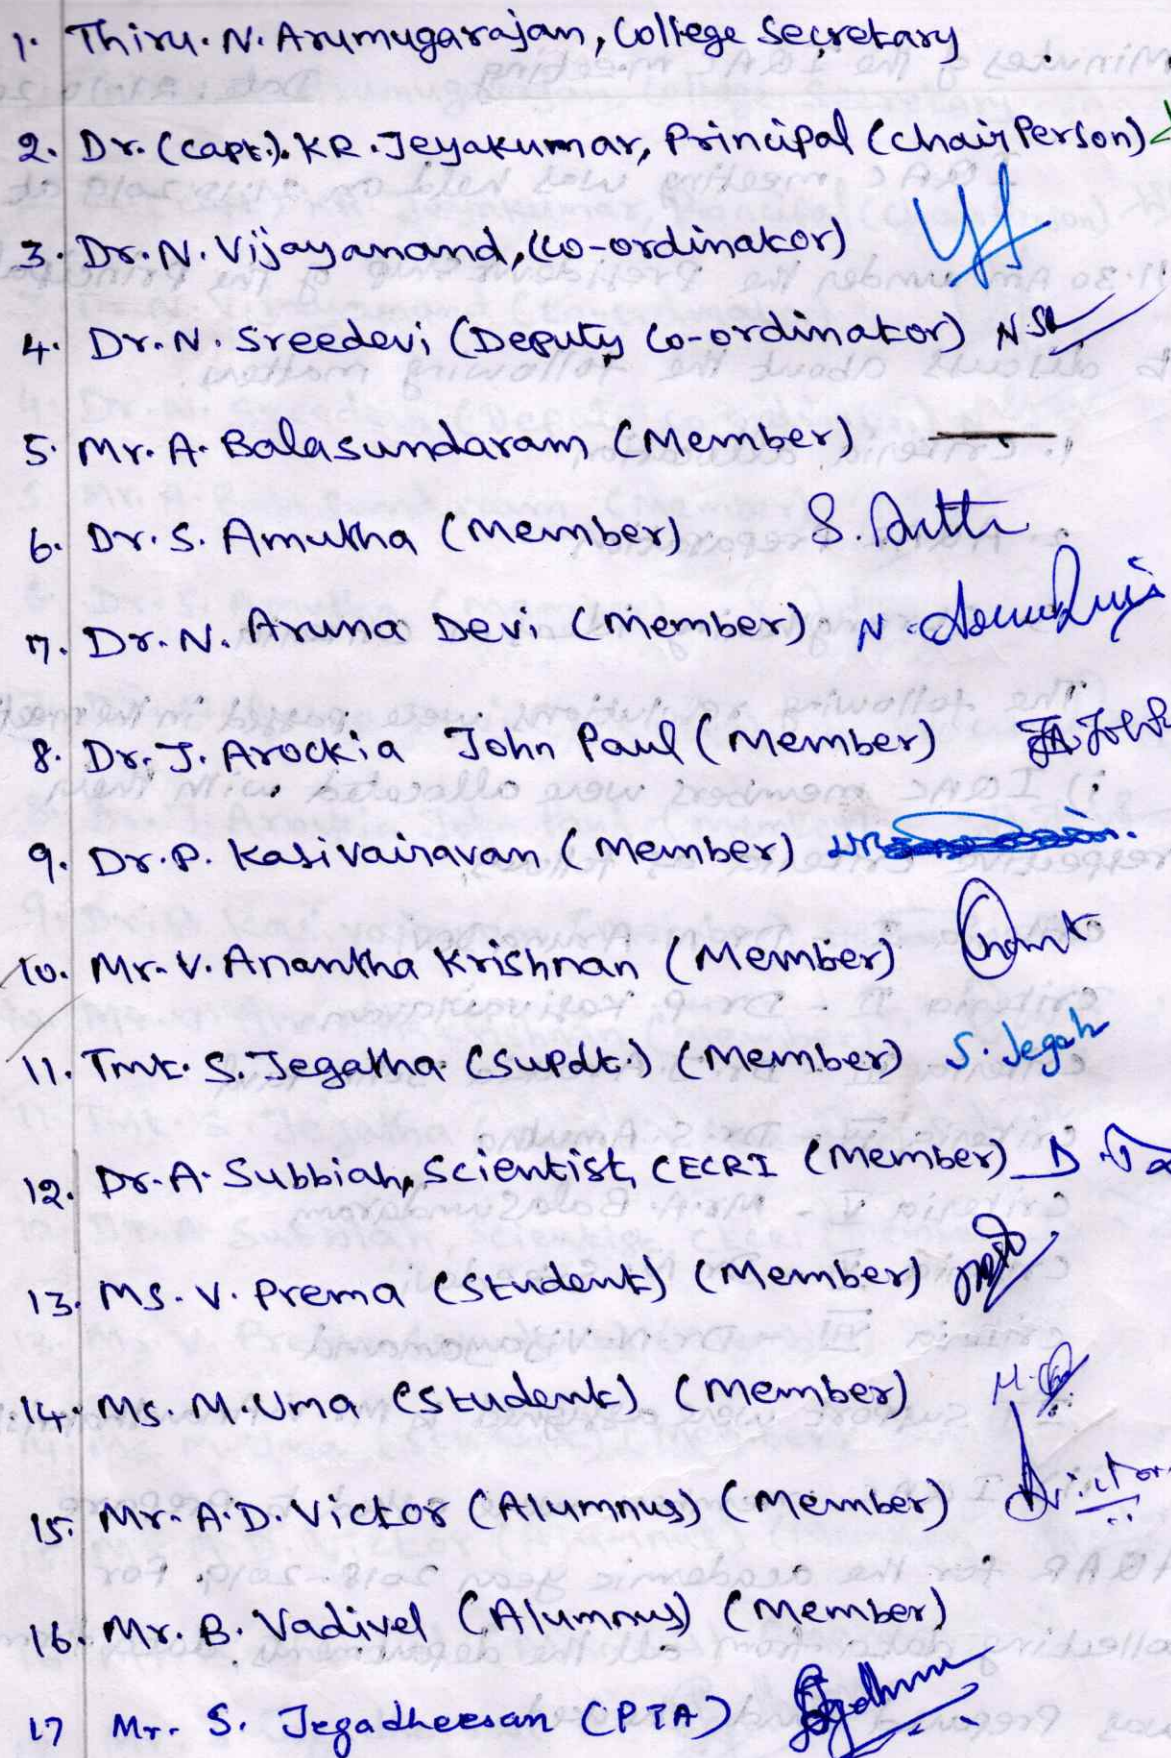 1. Thiru. N. Arumugarajan, College Secretary
2. Dr. (Capt.). KR. Jeyakumar, Principal (Chair Person)
3. Dr. N. Vijayanand, (Co-ordinator)
4. Dr. N. Sreedevi (Deputy Co-ordinator)
5. Mr. A. Balasundaram (Member)
6. Dr. S. Amutha (Member)
7. Dr. N. Aruna Devi (Member)
8. Dr. J. Arockia John Paul (Member)
9. Dr. P. Kasivairavan (Member)
10. Mr. V. Anantha Krishnan (Member)
11. Tmt. S. Jegatha (Supdt.) (Member) S. Jegath
12. Dr. A. Subbiah, Scientist, CECRI (Member)
13. Ms. V. Prema (Student) (Member)
14. Ms. M. Uma (Student) (Member)
15. Mr. A.D. Victor (Alumnus) (Member)
16. Mr. B. Vadivel (Alumnus) (Member)
17 Mr. S. Jegadheesan (PTA)